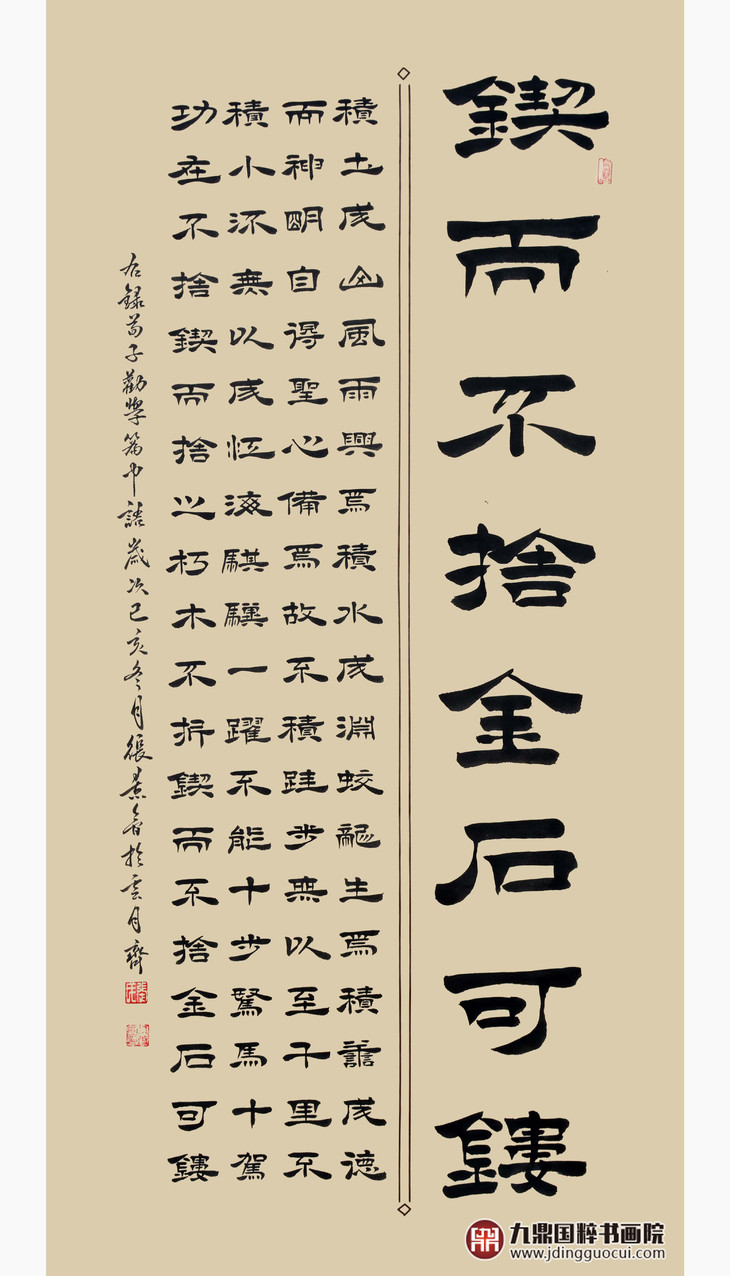 鍥而不捨金石可鏤
積土成山風雨興焉積水成淵蛟龍生焉積善成德
而神明自得聖心備焉故不積跬步無以至千里不
積小流無以成江海騏驥一躍不能十步駑馬十駕
功在不捨鍥而捨之朽木不折鍥而不捨金石可鏤
右錄荀子勸學篇中語歲次己亥冬月張於雲月齋
九鼎国粹书画院
www.jdingguocui.com